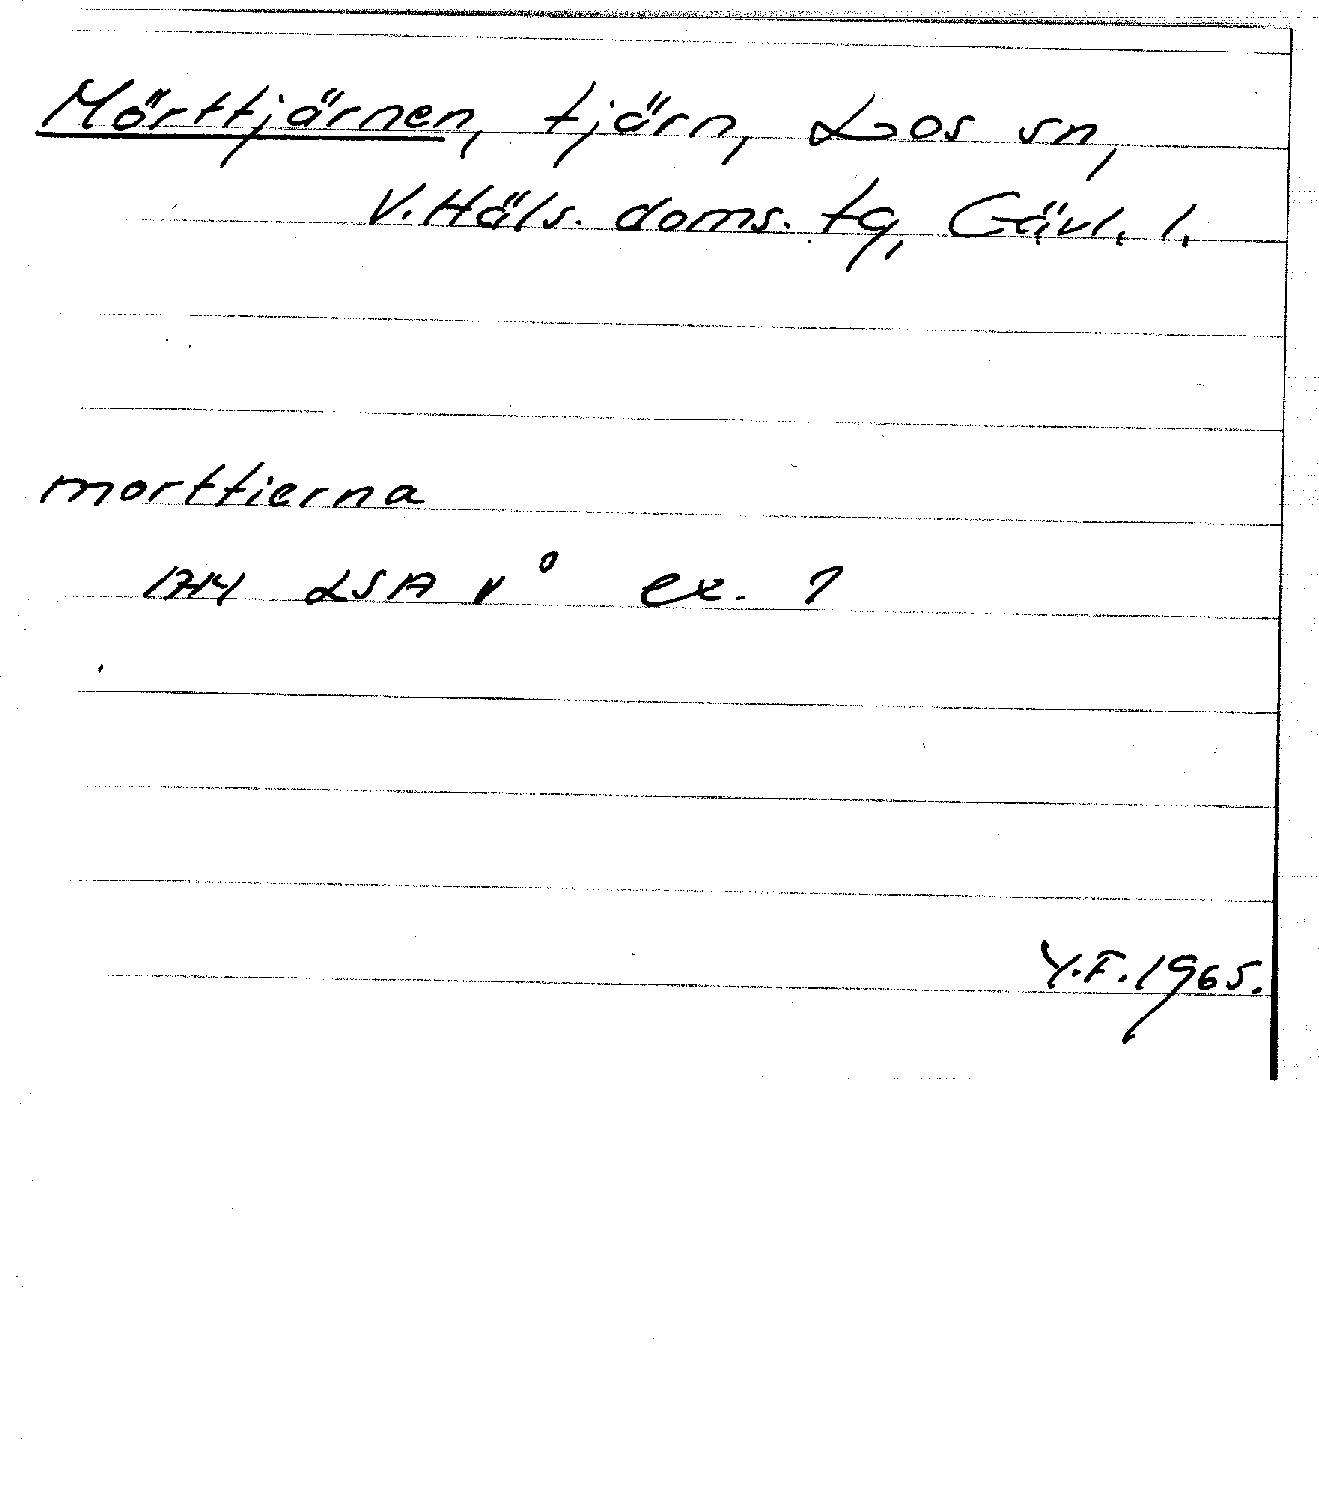 Mörttjärnen, tjärn, Los sn,
V. Häls. doms. tg, Gävl. l.
morttierna
LSA v° ex. 1
Y.F. 1965.